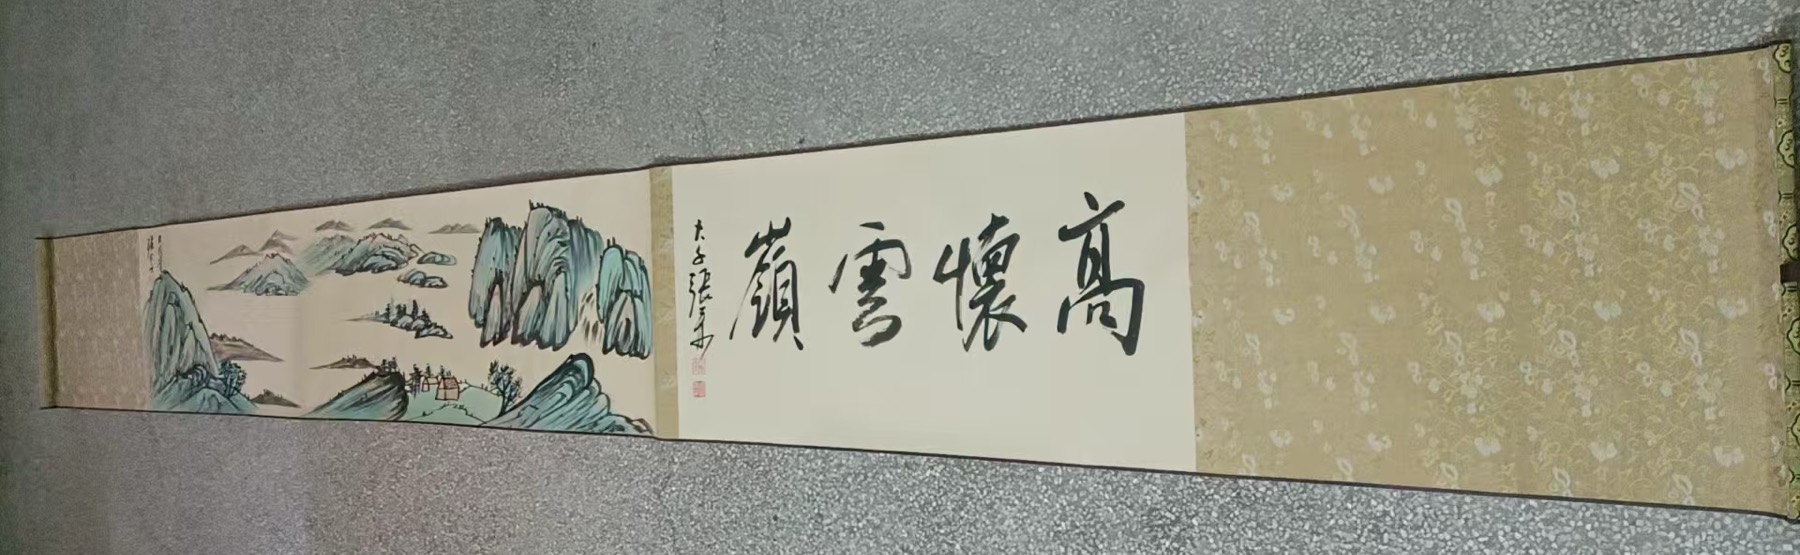 高懷雲嶺
大千張爰